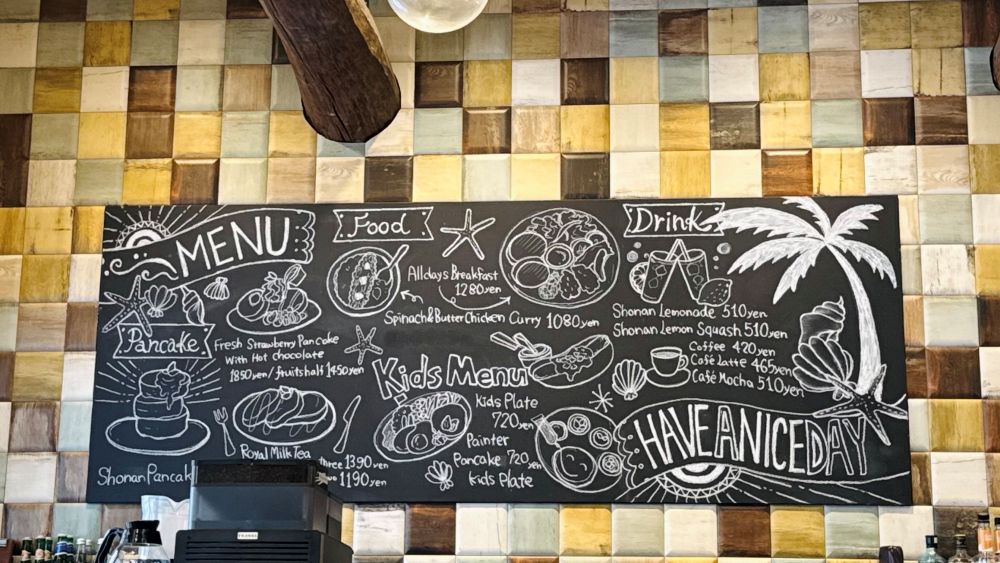 MENU
Pancake
Fresh Strawberry Pancake
With Hot chocolate
1850yen / fruitshalf 1450yen
Shonan Pancak
Royal Milk Tea
three 1390yen
1190yen
Food
Alldays Breakfast
1280yen
Spinach&Butter Chicken Curry 1080yen
Kids Menu
Kids Plate
720yen
Painter
Pancake 720yen
Kids Plate
Drink
Shonan Lemonade 510yen
Shonan Lemon Squash 510yen
Coffee 420yen
Café Latte 465yen
Café Mocha 510yen
HAVE A NICE DAY